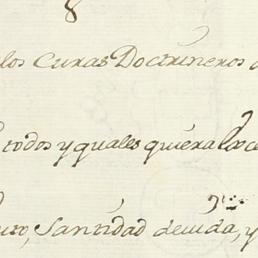 8
los Curas Doctrineros
todos y quales quiera
Santidad devida, y